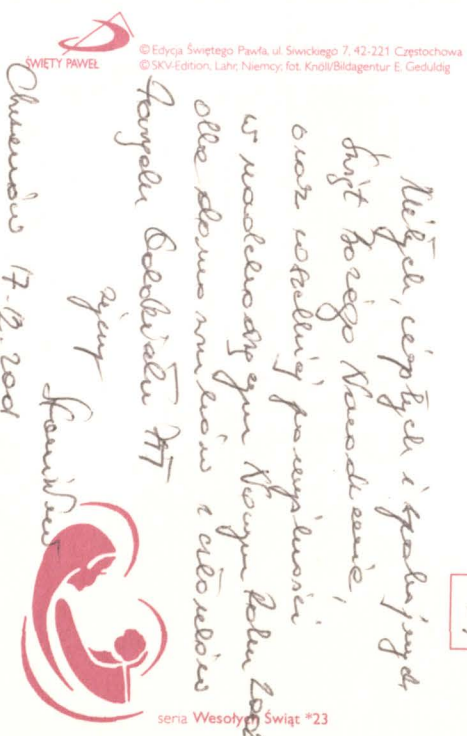 ŚWIĘTY PAWEŁ
© Edycja Świętego Pawła, ul. Siwickiego 7, 42-221 Częstochowa
© SKV-Edition, Lahr, Niemcy; fot. Knöll/Bildagentur E. Geduldig
Miłych, ciepłych i spokojnych
Świąt Bożego Narodzenia,
oraz wszelkiej pomyślności
w nadchodzącym Nowym Roku 2002
dla domowników i członków
Zarządu Oddziału
życzy
17.12.2001
seria Wesołych Świąt *23